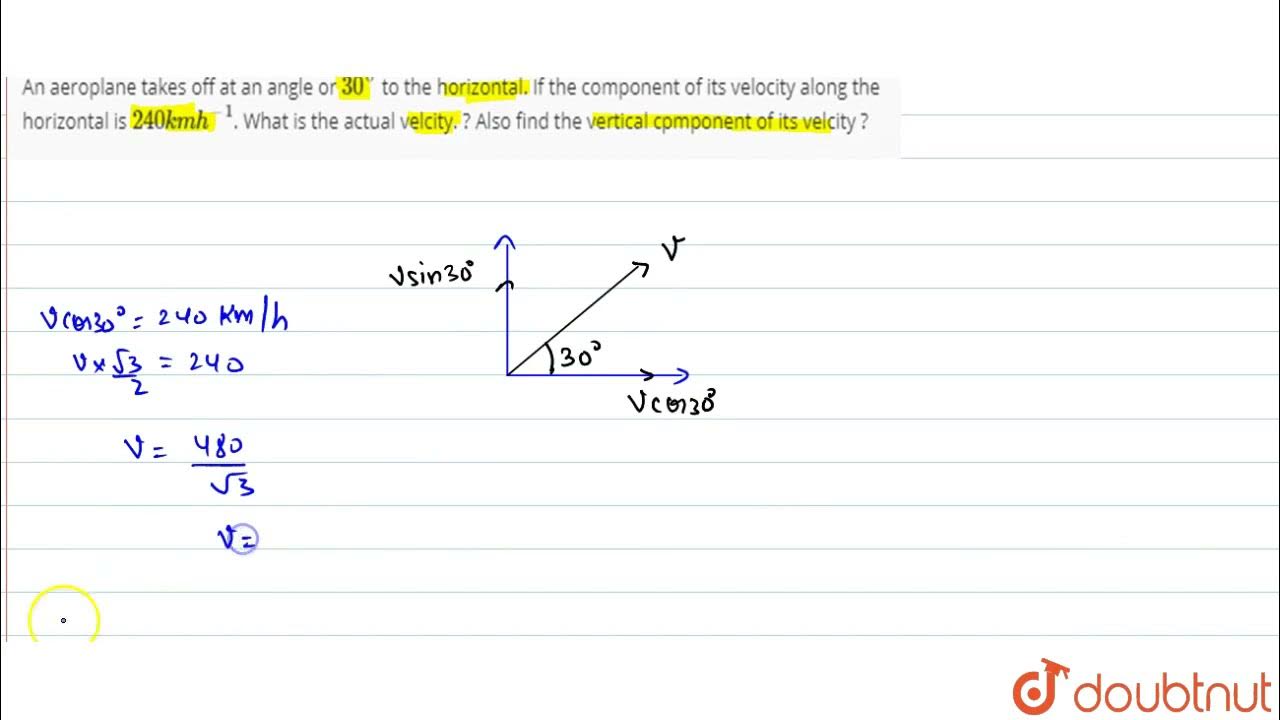 An aeroplane takes off at an angle or 30° to the horizontal. If the component of its velocity along the
horizontal is 240kmh⁻¹. What is the actual velcity. ? Also find the vertical cpmponent of its velcity ?
v
vsin30°
vcos30° = 240 Km/h
v × √3/2 = 240
30°
vcos30°
v = 480/√3
v =
doubtnut